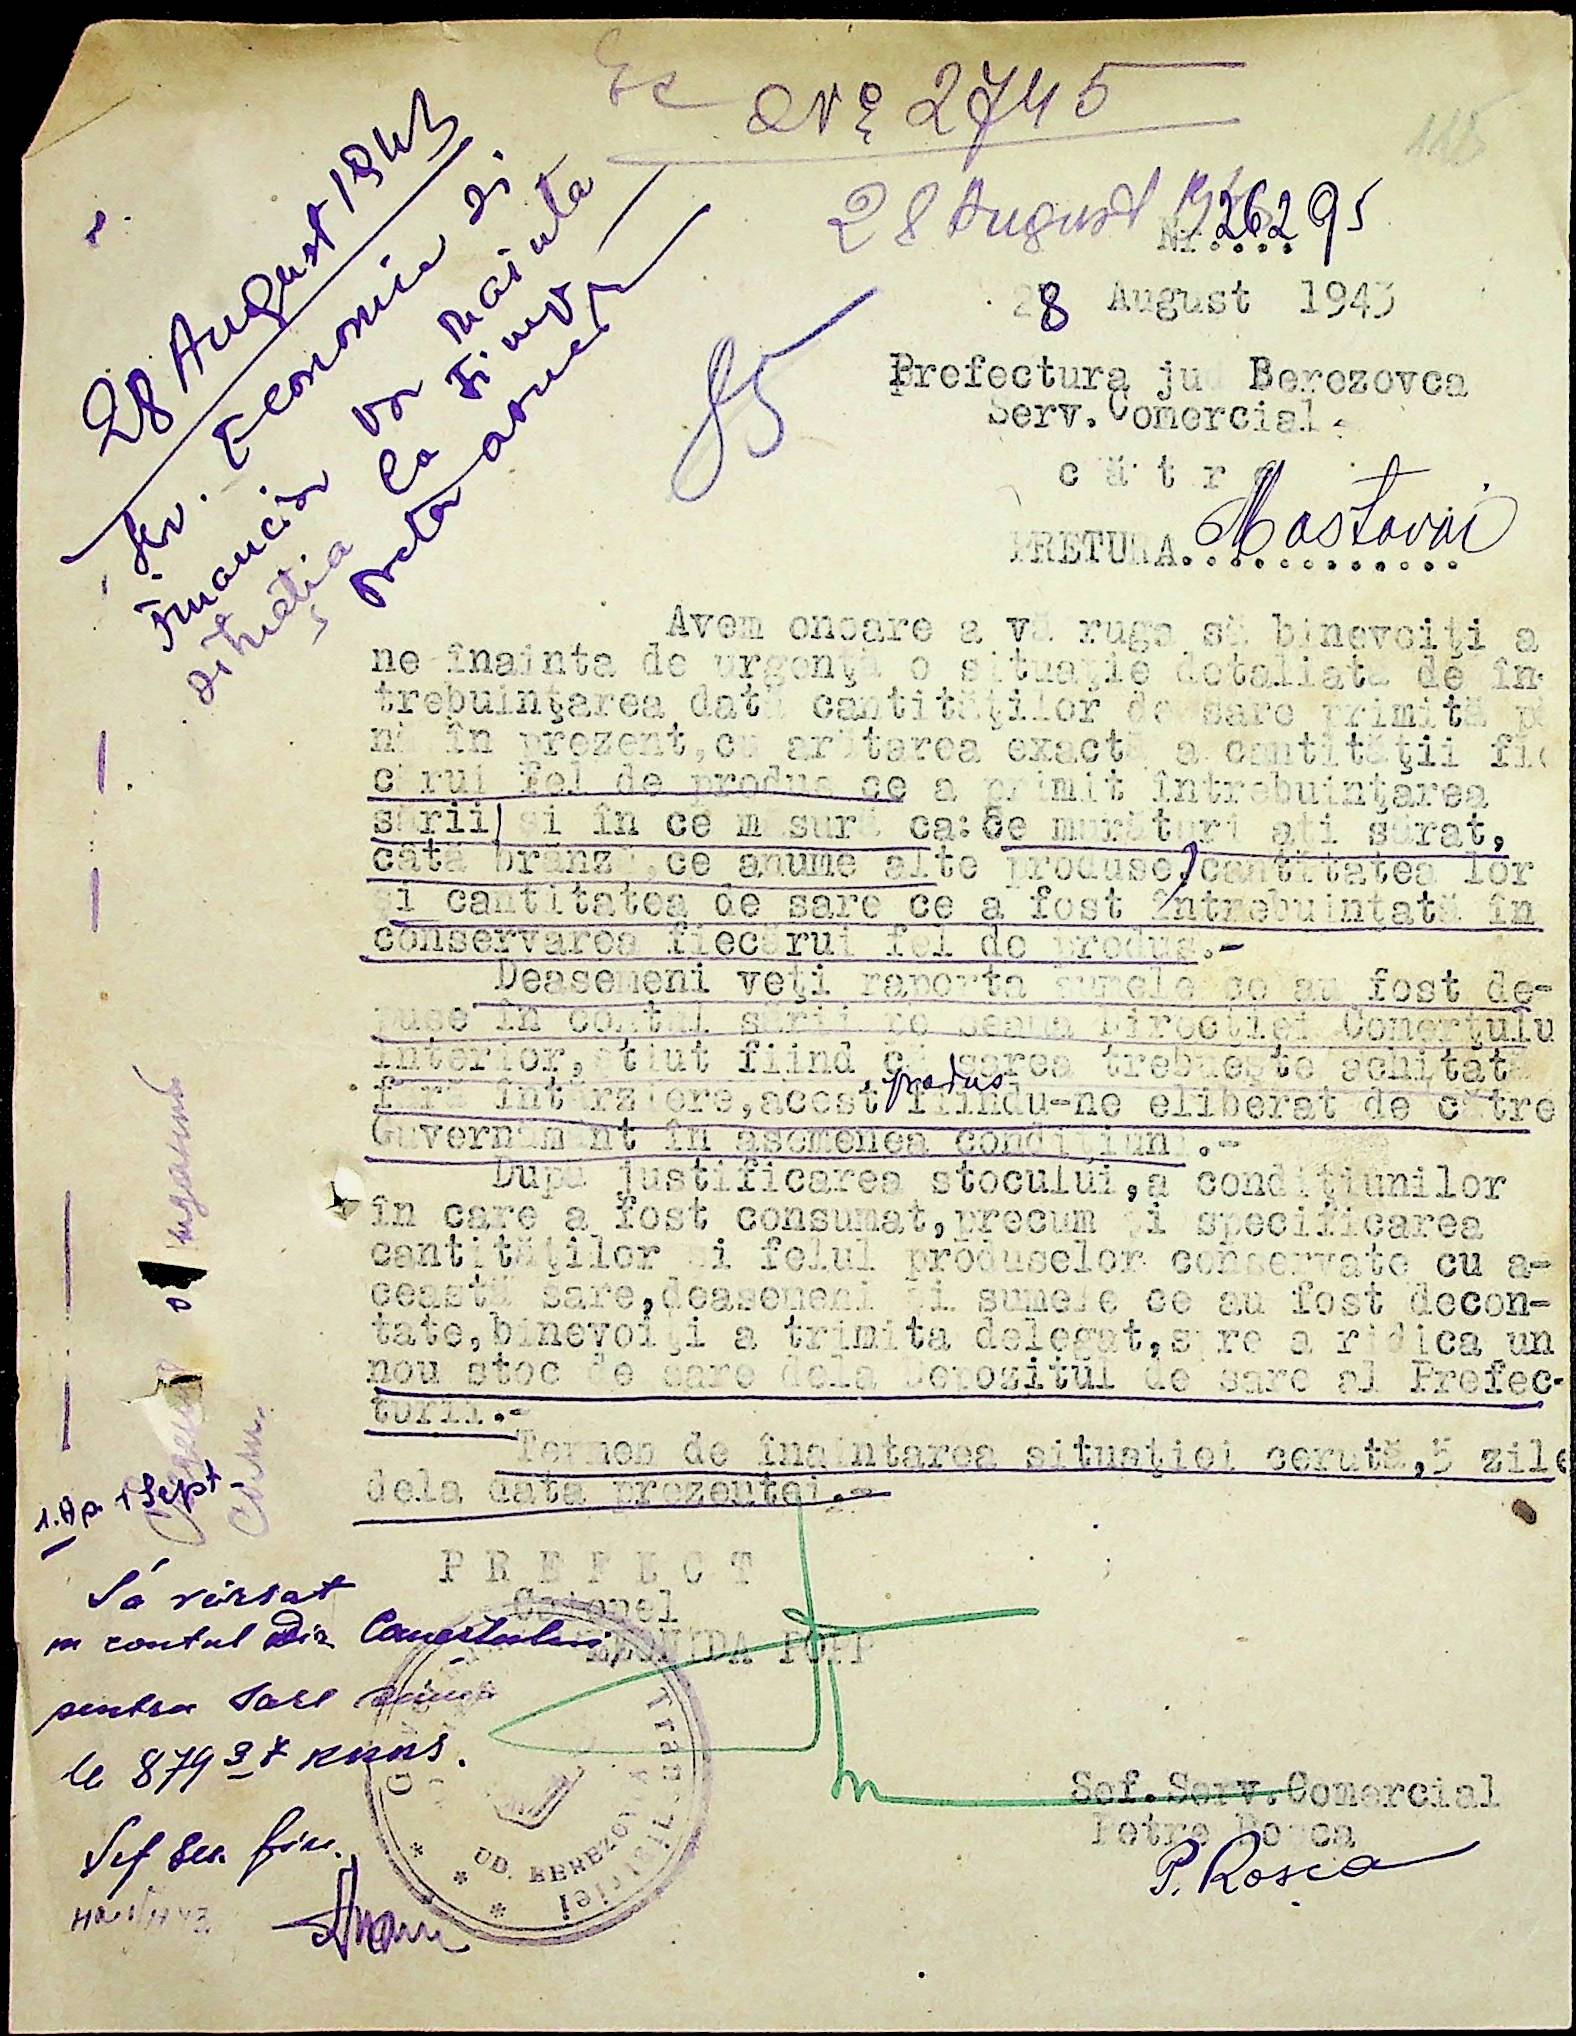 2745
28 August
Nr. 26295
28 August 1943
85
Prefectura jud Berezovca
Serv. Comercial.
cătr
PRETURA. Mostovoi
28 August 1943
Serv. Economic și
Financiar vor înainta
situația la timp
Avem onoare a vă ruga să binevoiţi a
ne înainta de urgenţă o situaţie detaliată de în-
trebuinţarea dată cantităţilor de sare primită pâ
nă în prezent,cu arătarea exactă a cantităţii fie
cărui fel de produs ce a primit întrebuinţarea
sării şi în ce măsură ca: Ce murături aţi sărat,
câtă brânză,ce anume alte produse, cantitatea lor
şi cantitatea de sare ce a fost întrebuinţată în
conservarea fiecărui fel de produs.-
Deasemeni veţi raporta sumele ce au fost de-
puse în contul sării pe seama Direcţiei Comerţulu
Interior,ştiut fiind că sarea trebueşte achitată
fără întârziere,acest produs fiindu-ne eliberat de către
Guvernământ în asemenea condiţiuni.-
După justificarea stocului,a condiţiunilor
în care a fost consumat,precum şi specificarea
cantităţilor şi felul produselor conservate cu a-
ceastă sare,deasemeni şi sumele ce au fost decon-
tate,binevoiţi a trimite delegat,spre a ridica un
nou stoc de sare dela Depozitul de sare al Prefec-
turii.-
Termen de înaintarea situaţiei cerută,5 zile
dela data prezentei.-
1 Sept
PREFECT
Colonel
LEONIDA POPP
S'a vărsat
în contul Dir Comerțului
pentru sare
le 879 37 RKKS.
Șef Ser. fin.
JUD. BEREZOVCA
Șef.Serv.Comercial
Petre Roşca
P. Roșca